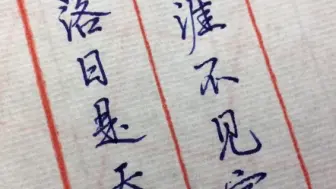 落日是天
涯不见